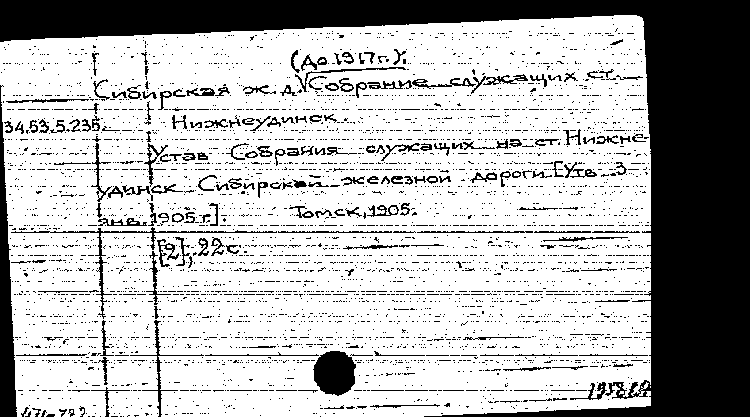 (До 1917 г.).
Сибирская ж. д. √Собрание служащих ст.
34.53.5.235. Нижнеудинск.
Устав Собрания служащих на ст. Нижне-
удинск Сибирской железной дороги. [Утв. 3
янв. 1905 г.]. Томск, 1905.
[2], 22 с.